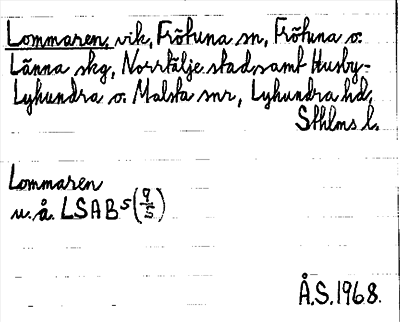 Lommaren, vik, Frötuna sn, Frötuna o.
Länna skg, Norrtälje stad samt Husby-
Lyhundra o. Malsta snr, Lyhundra hd,
Sthlms l.
Lommaren
u. å. LSAB S (9/5)
Å.S. 1968.